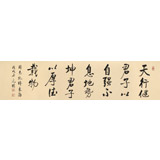 天行健
君子以
自强不
息地勢
坤君子
以厚德
載物